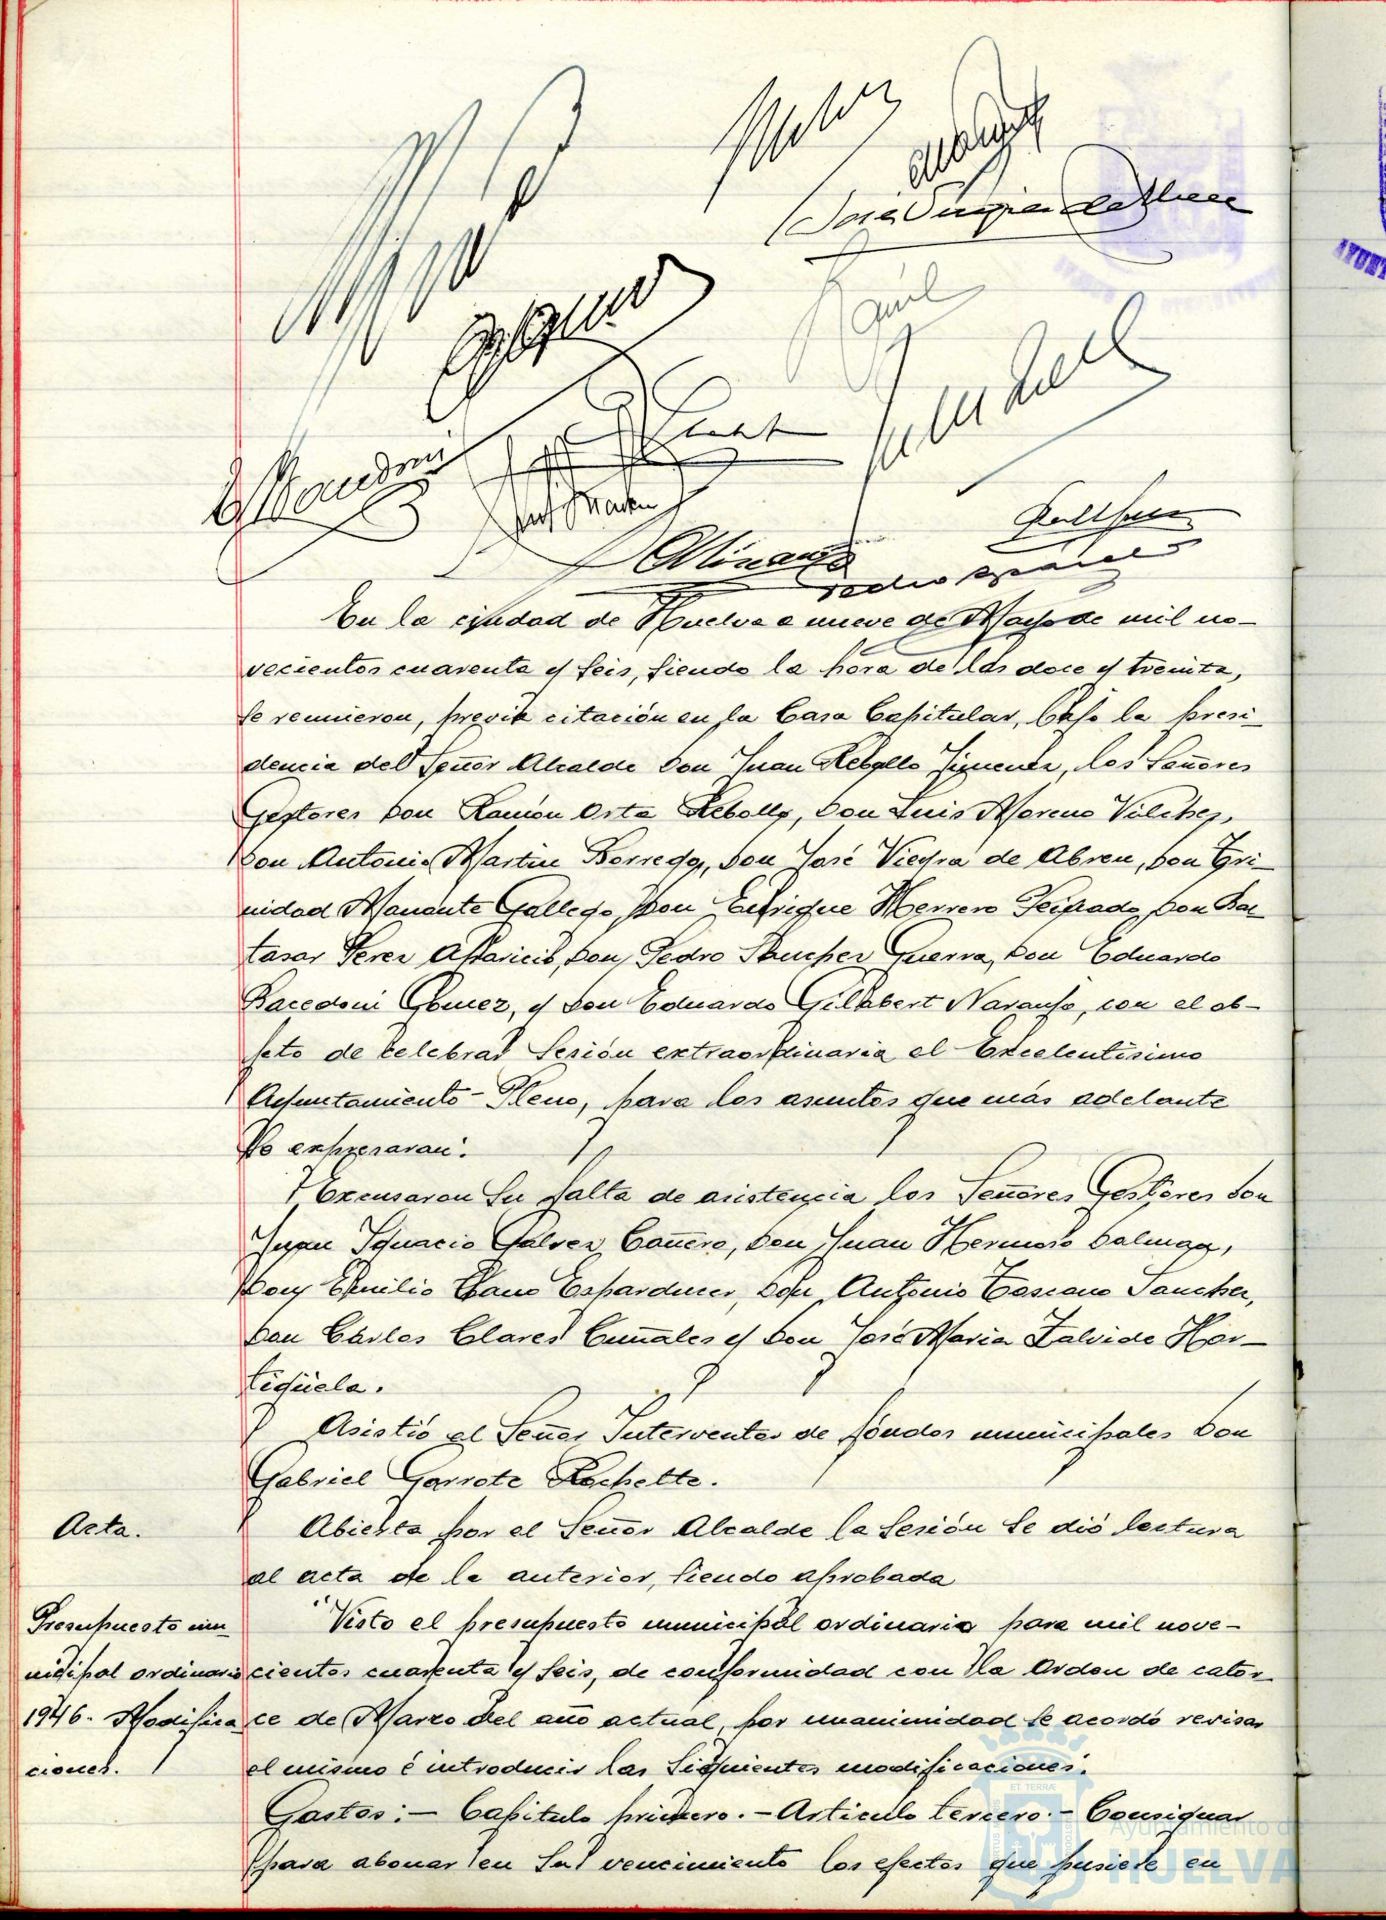 José Vieyra de Abreu
Pedro Sánchez
En la ciudad de Huelva a nueve de Mayo de mil no-
vecientos cuarenta y seis, siendo la hora de las doce y treinta,
se reunieron, previa citación en la Casa Capitular, bajo la presi-
dencia del Señor Alcalde Don Juan Rebollo Jimenez, los Señores
Gestores Don Ramón Orta Rebollo, Don Luis Moreno Vilchez,
Don Antonio Martin Borrego, Don José Vieyra de Abreu, Don Tri-
nidad Manante Gallego, Don Enrique Herrero Peinado, Don Bal-
tasar Perez Aparicio, Don Pedro Sanchez Guerra, Don Eduardo
Racedoni Gomez, y Don Eduardo Gilabert Naranjo, con el ob-
jeto de celebrar Sesión extraordinaria el Excelentisimo
Ayuntamiento-Pleno, para los asuntos que más adelante
se expresaran:
Excusaron su falta de asistencia los Señores Gestores Don
Juan Ignacio Galvez Cañero, Don Juan Hermoso
Don Emilio Cano Don Antonio Toscano Sanchez,
Don Cárlos Clares y Don José Maria Zalvide Hor-
tigüela.
Asistió el Señor Interventor de fóndos municipales Don
Gabriel Garrote Rochette.
Acta.
Abierta por el Señor Alcalde la Sesión se dió lectura
al acta de la anterior, siendo aprobada
Presupuesto mu-
nicipal ordinario
1946. Modifica
ciones.
"Visto el presupuesto municipal ordinario para mil nove-
cientos cuarenta y seis, de conformidad con la Orden de cator-
ce de Marzo del año actual, por unanimidad se acordó revisar
el mismo é introducir las siguientes modificaciones:
Gastos:- Capitulo primero.- Articulo tercero.- Consignar
para abonar en su vencimiento los efectos que pusiese en
ET TERRÆ
Ayuntamiento de
HUELVA